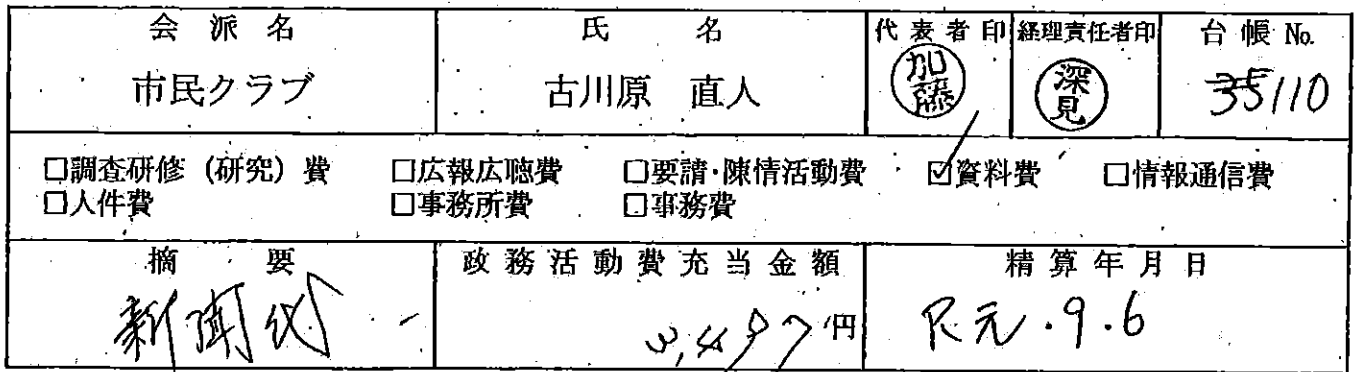 会派名 氏名 代表者印 経理責任者印 台帳 No.
市民クラブ 古川原 直人 加藤 深見 35110
□調査研修（研究）費 □広報広聴費 □要請・陳情活動費 ☑資料費 □情報通信費
□人件費 □事務所費 □事務費
摘要 政務活動費充当金額 精算年月日
新聞代 3,497円 R元.9.6